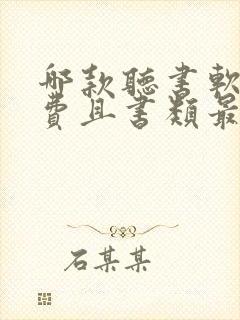 哪款聽書軟
費且書類最
石某某